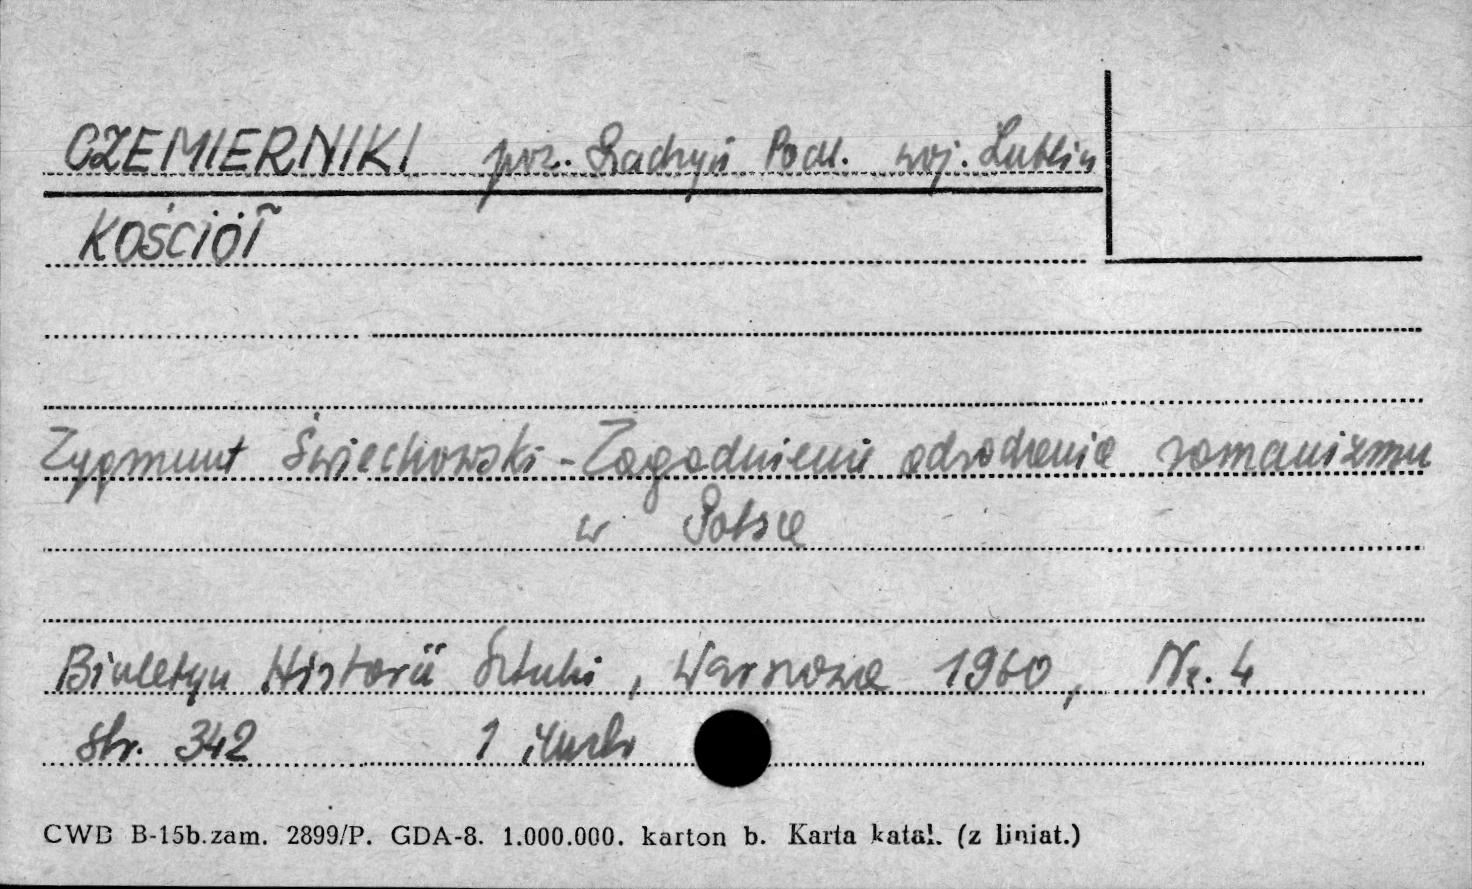 CZEMIERNIKI pow. Radzyń Podl. woj. Lublin
KOŚCIÓŁ
Zygmunt Świechowski - Zagadnienie odrodzenia romanizmu
w Polsce
Biuletyn Historii Sztuki, Warszawa 1960, Nr. 4
str. 342 1 ilustr
CWD B-15b.zam. 2899/P. GDA-8. 1.000.000. karton b. Karta katal. (z liniat.)